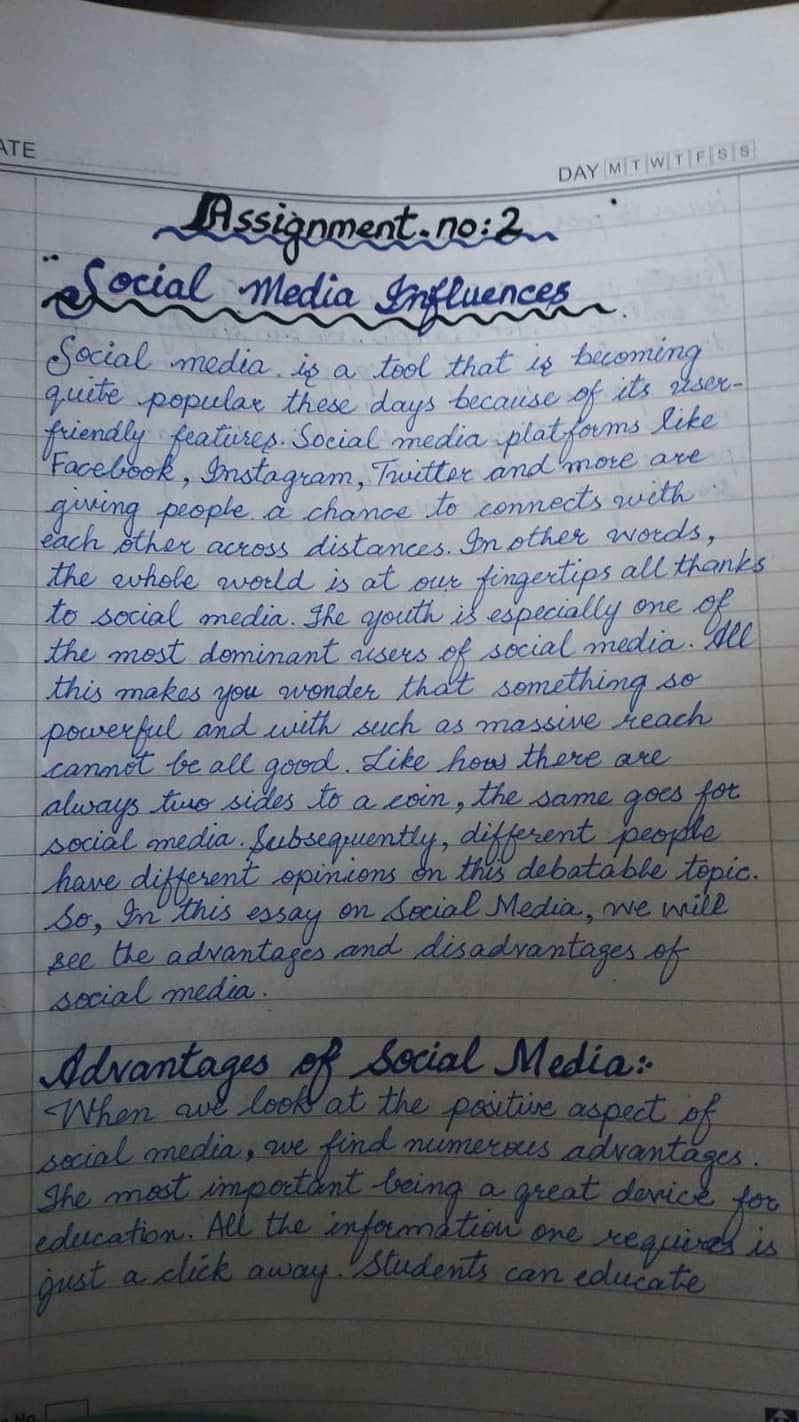 ATE
DAY M T W T F S S
Assignment.no:2
"Social Media Influences
Social media is a tool that is becoming
quite popular these days because of its user-
friendly features. Social media platforms like
Facebook, Instagram, Twitter and more are
giving people a chance to connects with
each other across distances. In other words,
the whole world is at our fingertips all thanks
to social media. The youth is especially one of
the most dominant users of social media. All
this makes you wonder that something so
powerful and with such as massive reach
cannot be all good. Like how there are
always two sides to a coin, the same goes for
social media. Subsequently, different people
have different opinions on this debatable topic.
So, In this essay on Social Media, we will
see the advantages and disadvantages of
social media.
Advantages of Social Media:-
When we look at the positive aspect of
social media, we find numerous advantages.
The most important being a great device for
education. All the information one requires is
just a click away. Students can educate
No